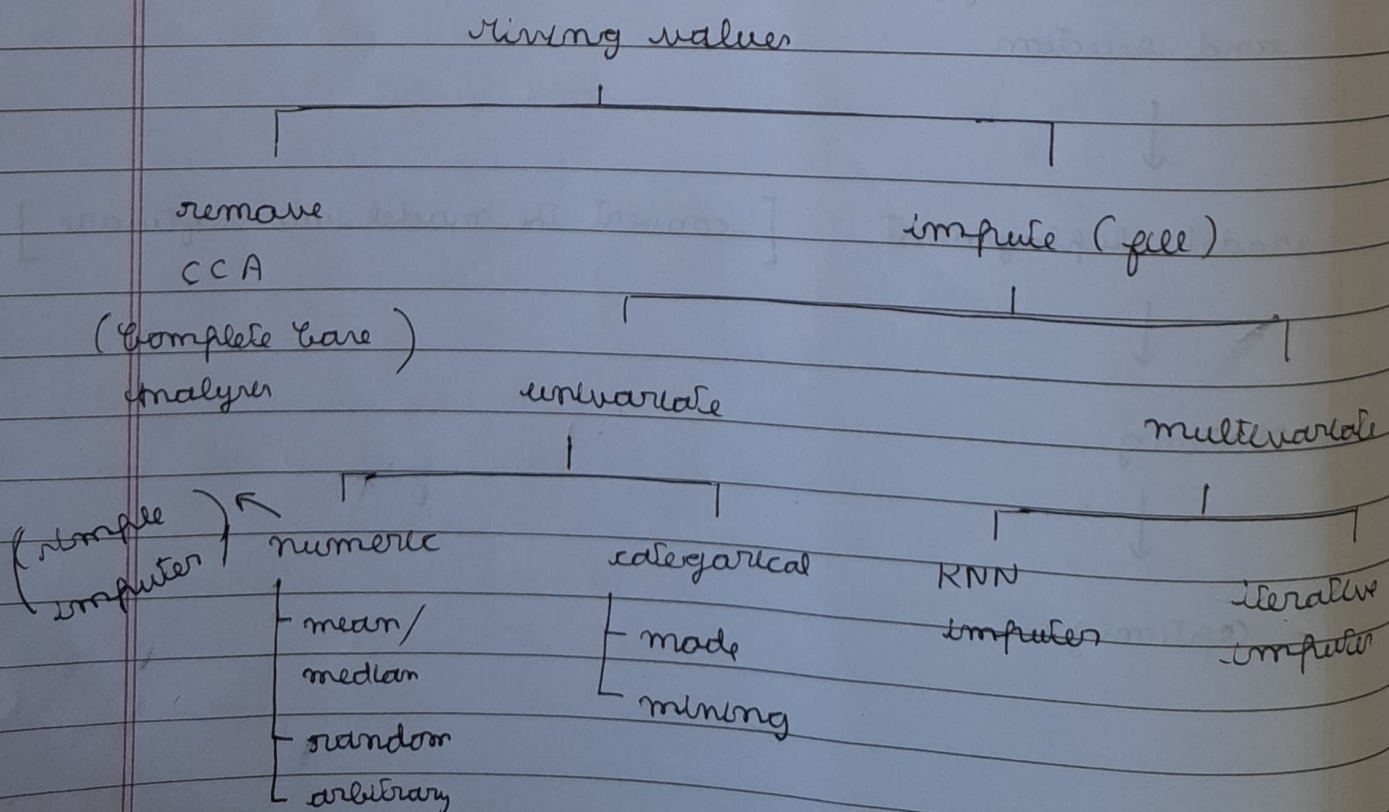 missing values
remove
impute (fill)
CCA
(Complete Case)
Analyses
univariate
multivariate
(simple
imputer)
numeric
categorical
KNN
imputer
iterative
imputer
mean/
median
random
arbitrary
mode
missing